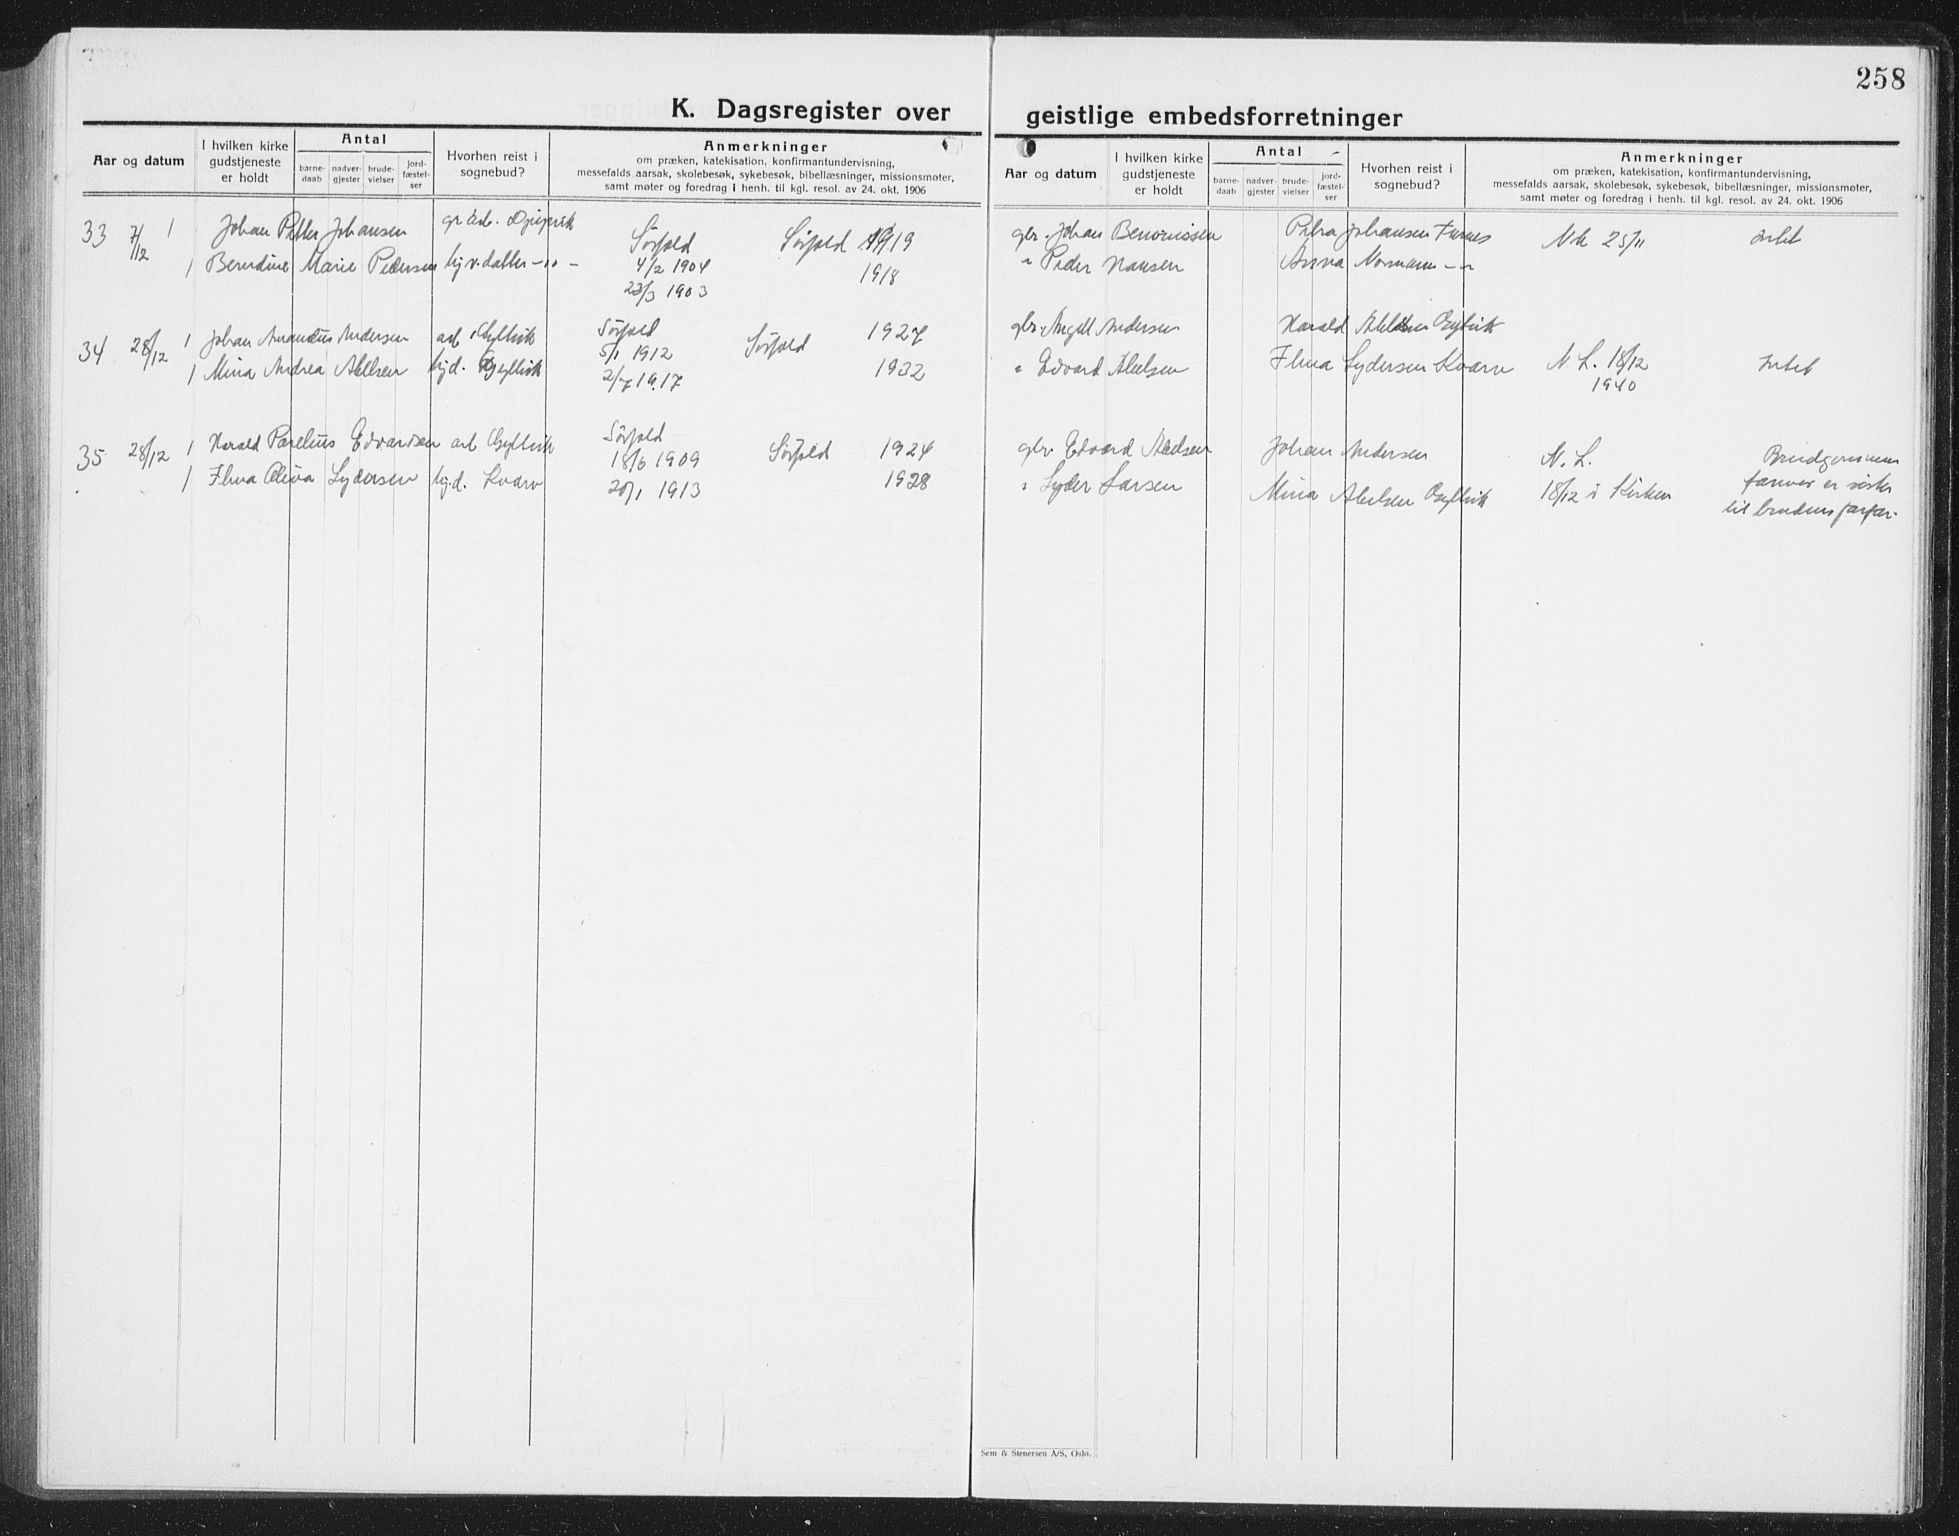 258
K. Dagsregister over geistlige embedsforretninger
Aar og datum
I hvilken kirke gudstjeneste er holdt
Antal
barne-daab
nadver-gjester
brude-vielser
jord-fæstel-ser
Hvorhen reist i sognebud?
Anmerkninger
om præken, katekisation, konfirmantundervisning,
messefalds aarsak, skolebesøk, sykebesøk, bibellæsninger, missionsmøter,
samt møter og foredrag i henh. til kgl. resol. av 24. okt. 1906
Aar og datum
I hvilken kirke gudstjeneste er holdt
Antal
barne-daab
nadver-gjester
brude-vielser
jord-fæstel-ser
Hvorhen reist i sognebud?
Anmerkninger
om præken, katekisation, konfirmantundervisning,
messefalds aarsak, skolebesøk, sykebesøk, bibellæsninger, missionsmøter,
samt møter og foredrag i henh. til kgl. resol. av 24. okt. 1906
33 7/12 1 Johan Petter Johansen Sørfold Sørfold 1919 Johan Benonissen Petra Johansen Furnes 25/11 Intet
1 Berndine Marie Pedersen 4/2 1904 1918 " Peder Hansen Anna Normann - " -
23/3 1903
34 28/12 1 Johan Amandus Andersen arb. Gyltvik Sørfold 5/1 1912 Sørfold 1927 Andersen Harald Gyltvik
1 Mina Andrea Abelsen Gyltvik 2/7 1917 1932 " Edvard Abelsen Elma Lydersen Kvarv N. L. 18/12 1940 Intet
35 28/12 1 Harald Parelius Edvardsen arb Gyltvik Sørfold 18/6 1909 Sørfold 1924 Edvard Abelsen Johan Andersen N. L.
1 Elma Oliva Lydersen Kvarv 20/1 1913 1928 " Lyder Larsen Mina Abelsen Gyltvik 18/12 i Kirken
Brudgommens
farmor er søster
til brudens farfar.
Sem & Stenersen A/S, Oslo.